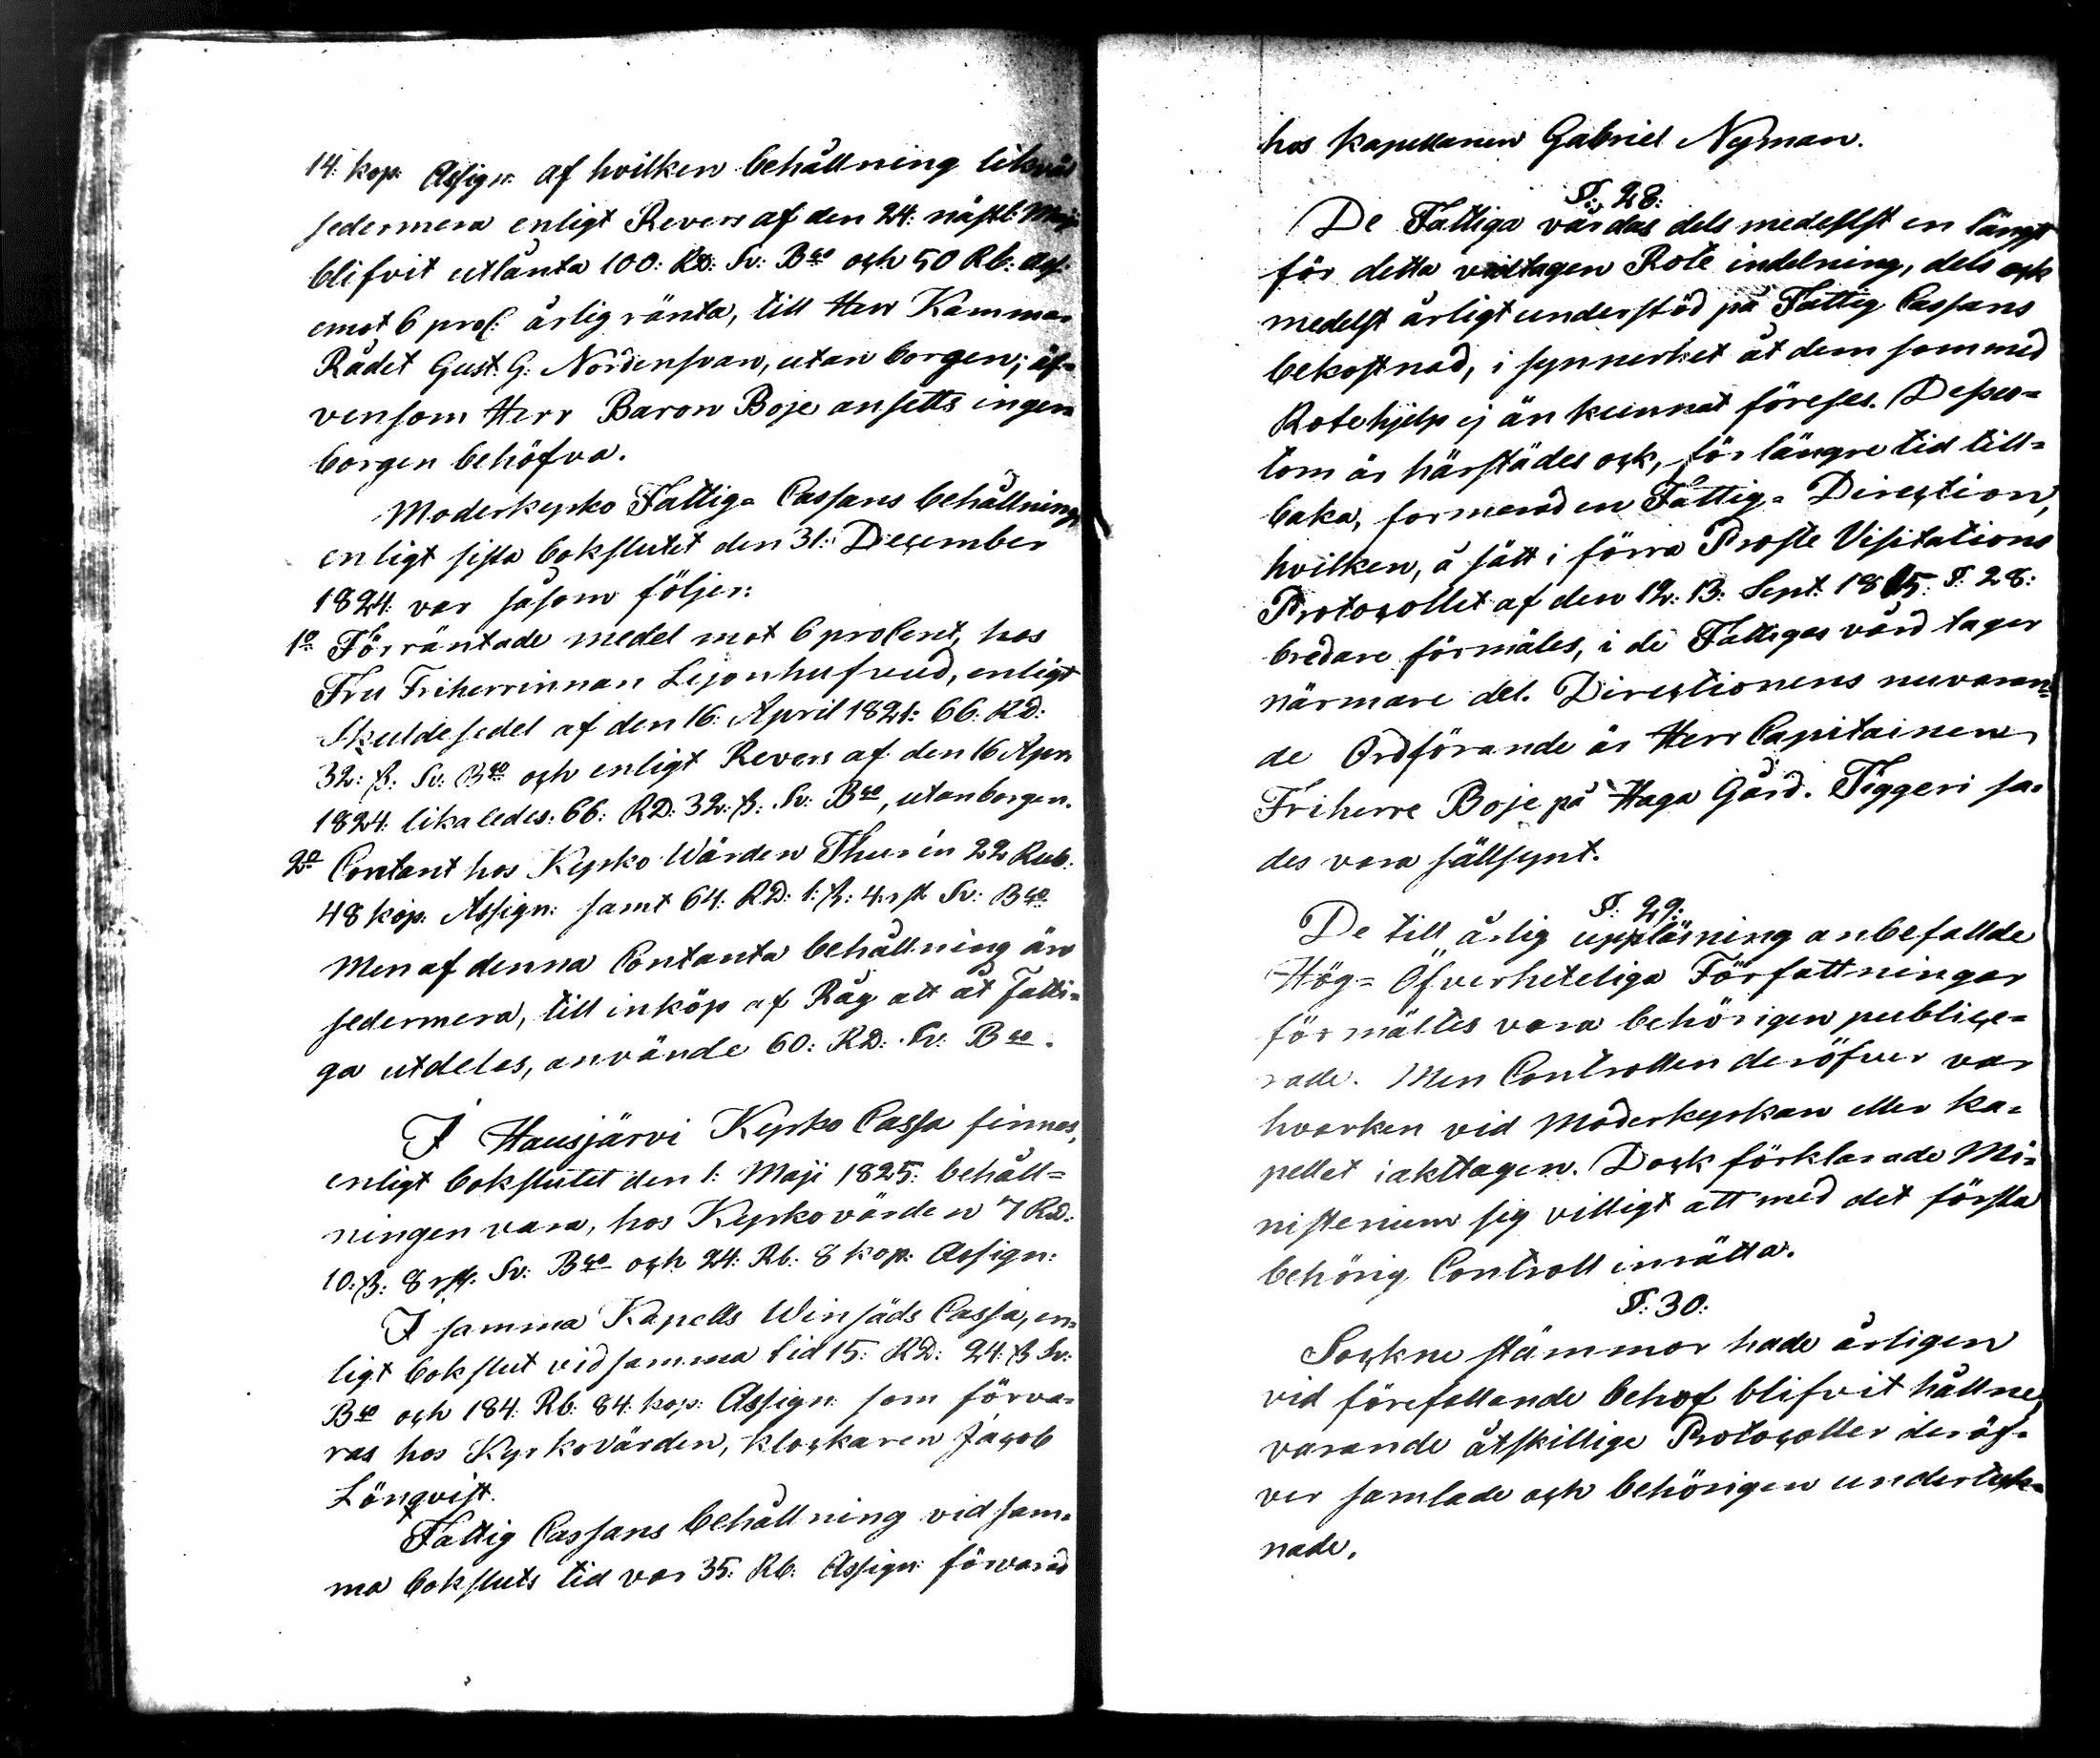 14: kop: Assign: af hvilken behållning likväl
sedermera enligt Revers af den 24: nästl: Maji
blifvit utlånta 100: RD: Sv: Bco och 50 Rb: Ass:
emot 6 proC: årlig ränta, till Herr Kammar
Rådet Gust: G: Nordensvan, utan borgen; äf=
vensom Herr Baron Boje ansetts ingen
borgen behöfva.
Moderkyrko Fattig= Cassans behållning,
enligt sista bokslutet den 31: December
1824: var såsom följer:
1o Förräntade medel mot 6 proCent, hos
Fru Friherrinnan Lejonhufvud, enligt
Skuldesedel af den 16: April 1821: 66: RD:
32: ß: Sv: Bco och enligt Revers af den 16 Apr:
1824: likaledes: 66: RD: 32: ß: Sv: Bco, utan borgen.
2o Contant hos Kyrko Wärden Thurén 22 Rub:
48 kop: Assign: samt 64: RD: 1: ß: 4: rst Sv: Bco
Men af denna Contanta behållning äro
sedermera, till inköp af Råg att åt Fatti=
ga utdelas, använde 60: RD: Sv: Bco.
I Hausjärvi Kyrko Cassa finnes,
enligt bokslutet den 1: Maji 1825: behåll=
ningen vara, hos Kyrkovärden 7 RD:
10: ß: 8 rst: Sv: Bco och 24: Rb: 8 kop: Assign:
I samma Kapells Winsäds Cassa, en=
ligt bokslut vid samma tid 15: RD: 24: ß Sv:
Bco och 184: Rb: 84: kop: Assign: som förva=
ras hos Kyrkovärden, klockaren Jacob
Lönqvist.
Fattig Cassans behållning vid sam=
ma boksluts tid var 35: Rb: Assign: förvarad
hos kapellanen Gabriel Nyman.
§: 28:
De Fattiga vårdas dels medelst en längst
för detta vidtagen Rote indelning, dels ock
medelst årligt understöd på Fattig Cassans
bekostnad, i synnerhet åt dem som med
Rotehjelp ej än kunnat förses. Dessu=
tom är härstädes ock, för längre tid till=
baka, formerad en Fattig= Direction,
hvilken, å sätt i förra Proste Visitations
Protocollet af den 12: 13: Sept: 1815: §: 28:
bredare förmäles, i de Fattigas vård tager
närmare del. Directionens nuvaran=
de Ordförande är Herr Capitainen
Friherre Boje på Haga Gård. Tiggeri sa=
des vara sällsynt.
§: 29:
De till årlig uppläsning anbefallde
Hög= Öfverheteliga Författningar
förmältes vara behörigen publice=
rade. Men Controllen deröfver var
hvarken vid Moderkyrkan eller ka=
pellet iakttagen. Dock förklarade Mi=
nisterium sig villigt att med det första
behörig Controll inrätta.
§: 30:
Sockne stämmor hade årligen
vid förefallande behof blifvit hållne,
varande åtskillige Protocoller deröf=
ver samlade och behörigen underteck=
nade.